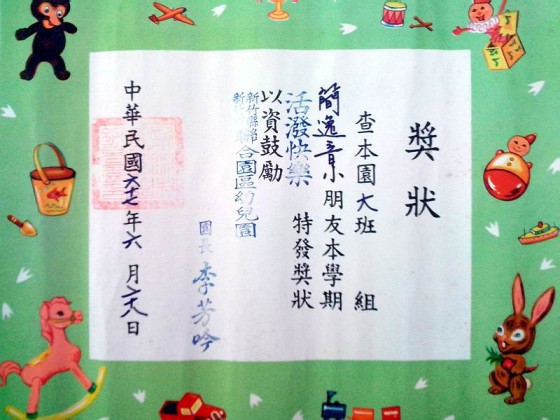 獎狀
查本園大班 組
簡逸章小朋友本學期
活潑快樂 特發獎狀
以資鼓勵
聯合園區幼兒園
園長 李芳吟
中華民國六七年六月六日